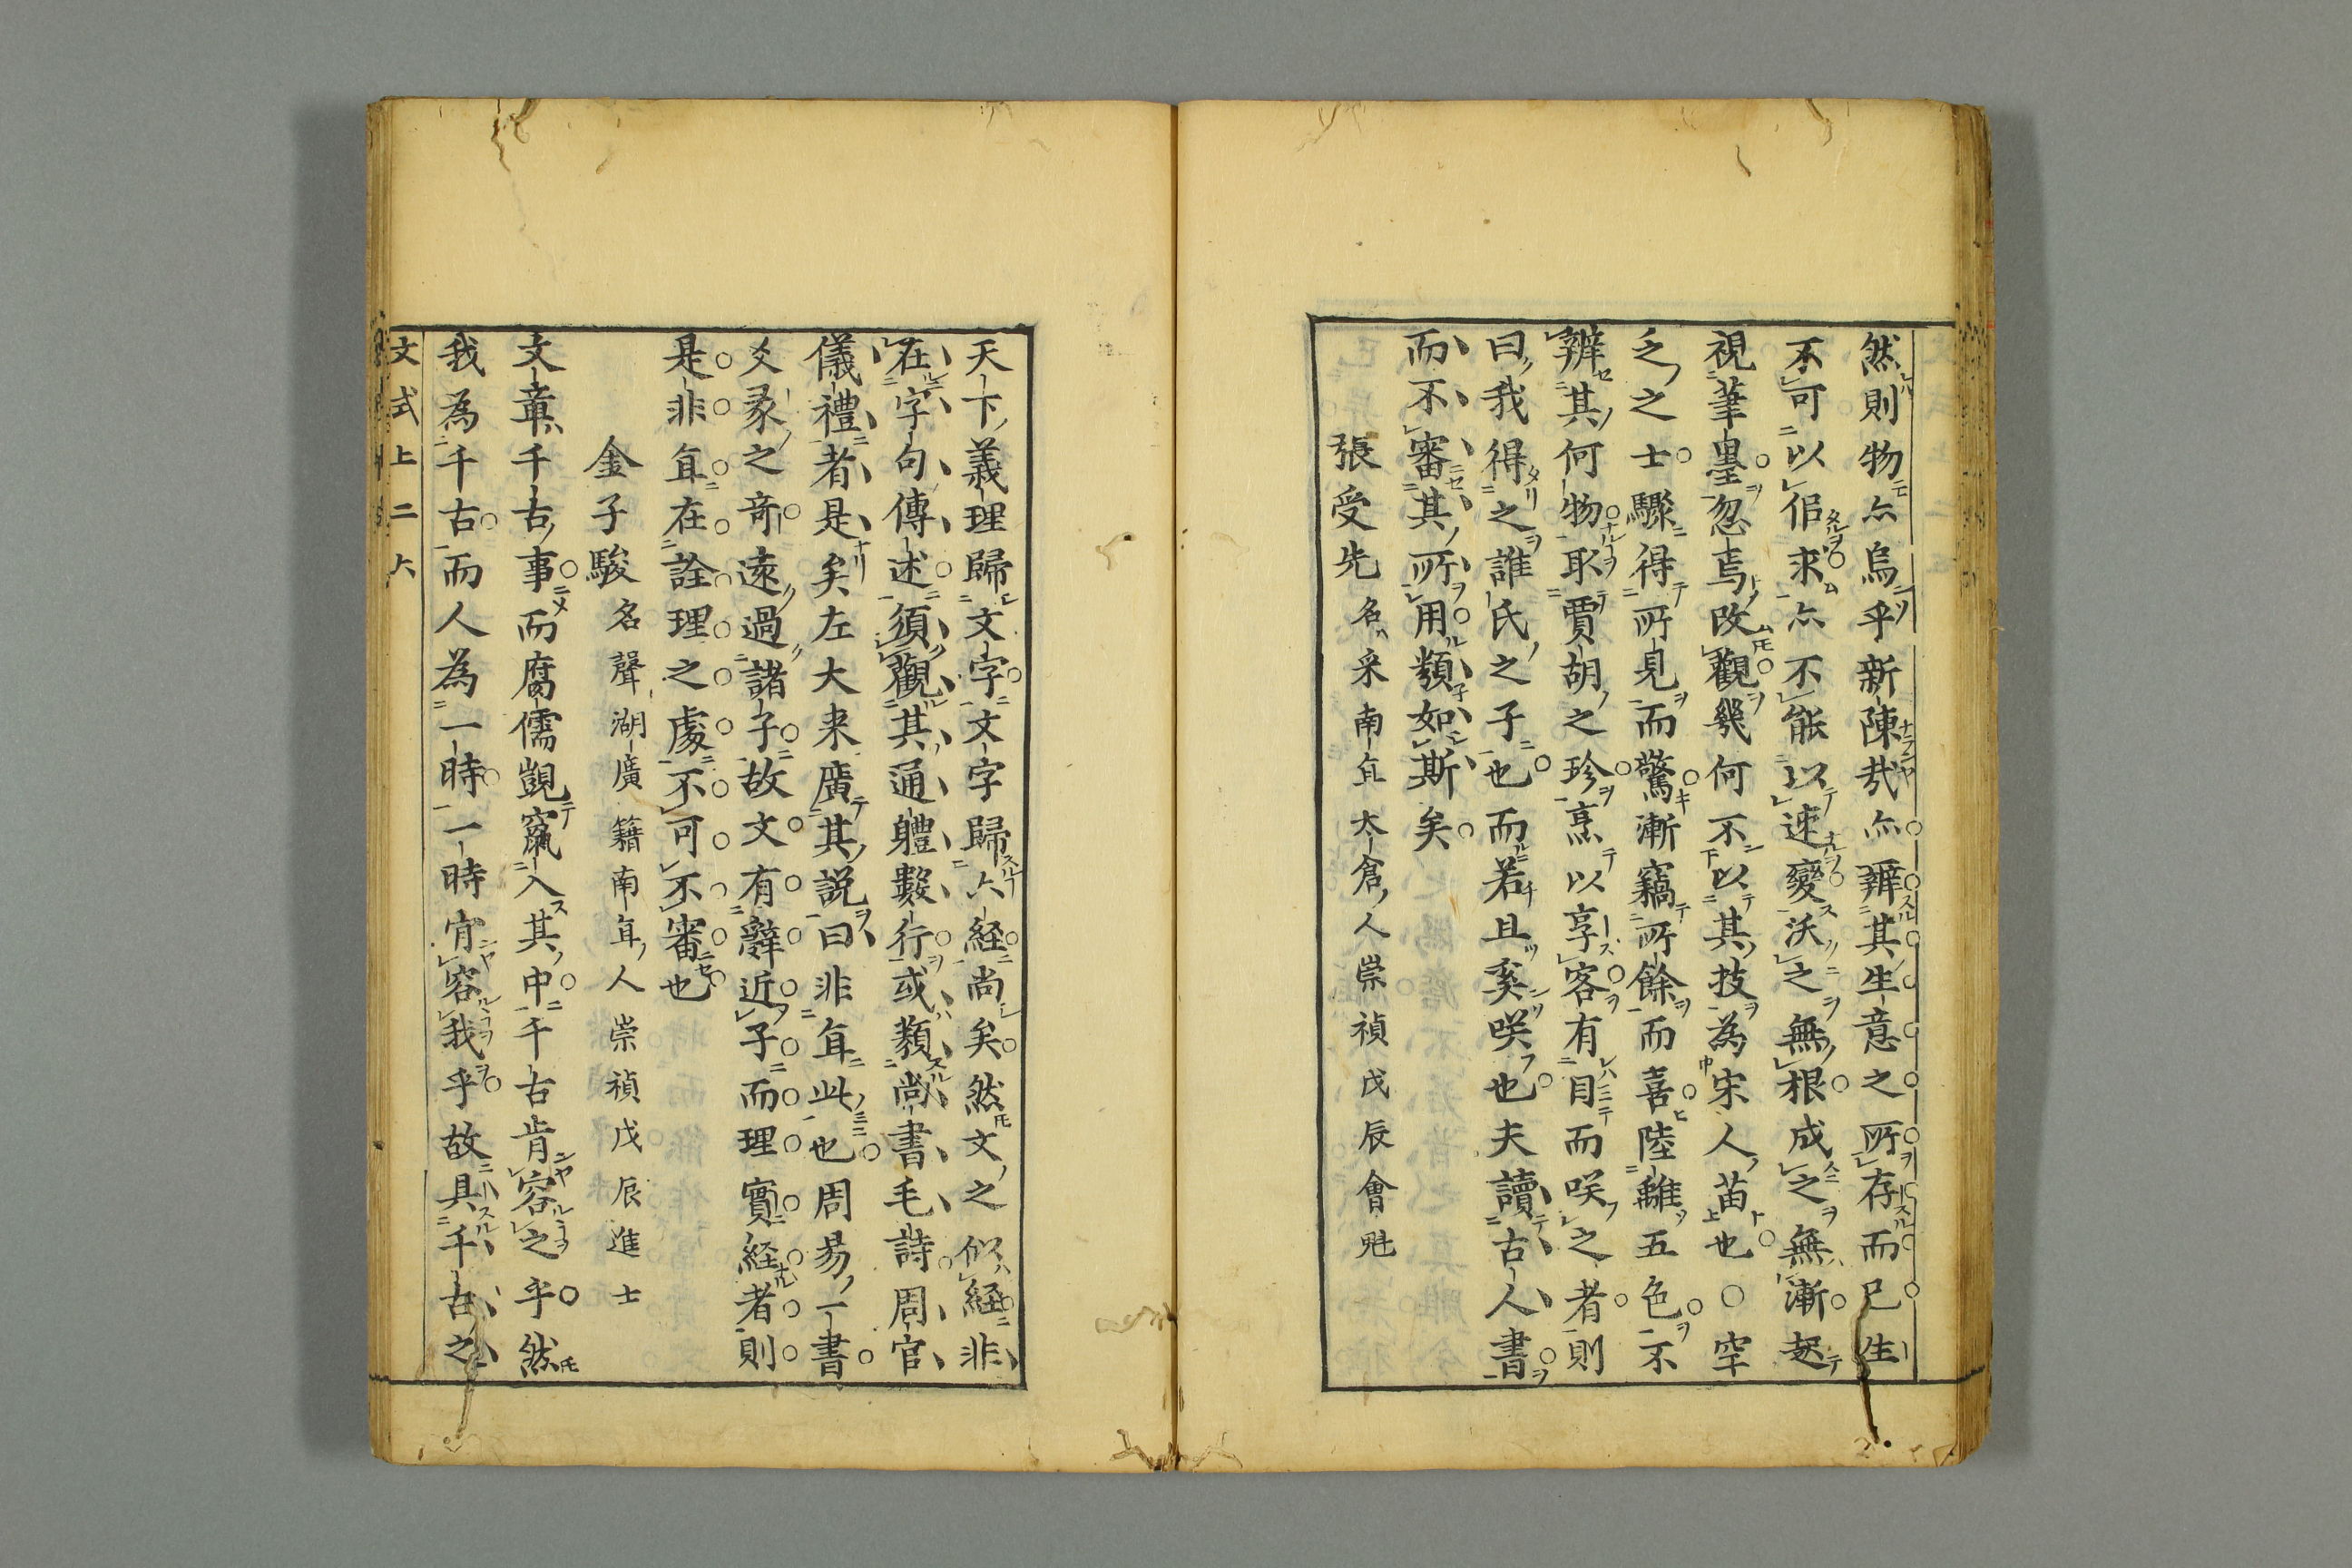 然則物亦烏乎新陳哉亦辨其生意之所存而已生
不可以佀求亦不能以速變沃之無根成之無漸起
視筆墨忽焉改觀幾何不以其技為宋人苗也○罕
乏之士驟得所見而驚漸竊所餘而喜陸離五色不
辨其何物取賈胡之珍烹以享客有目而咲之者則
曰我得之誰氏之子也而若且奚咲也夫讀古人書
而不審其所用類如斯矣
張受先 名采南直太倉人崇禎戊辰會魁
天下義理歸文字文字歸六經尚矣然文之似經非
在字句傳述須觀其通體數行或類尚書毛詩周官
儀禮者是矣左大来廣其説曰非直此也周易一書
爻彖之竒遠過諸子故文有辭近子而理實経者則
是非直在詮理之處不可不審也
金子駿 名聲湖廣籍南直人崇禎戊辰進士
文章千古事而腐儒覬竄入其中千古肯容之乎然
我為千古而人為一時一時肯容我乎故具千古之
文式上二 六